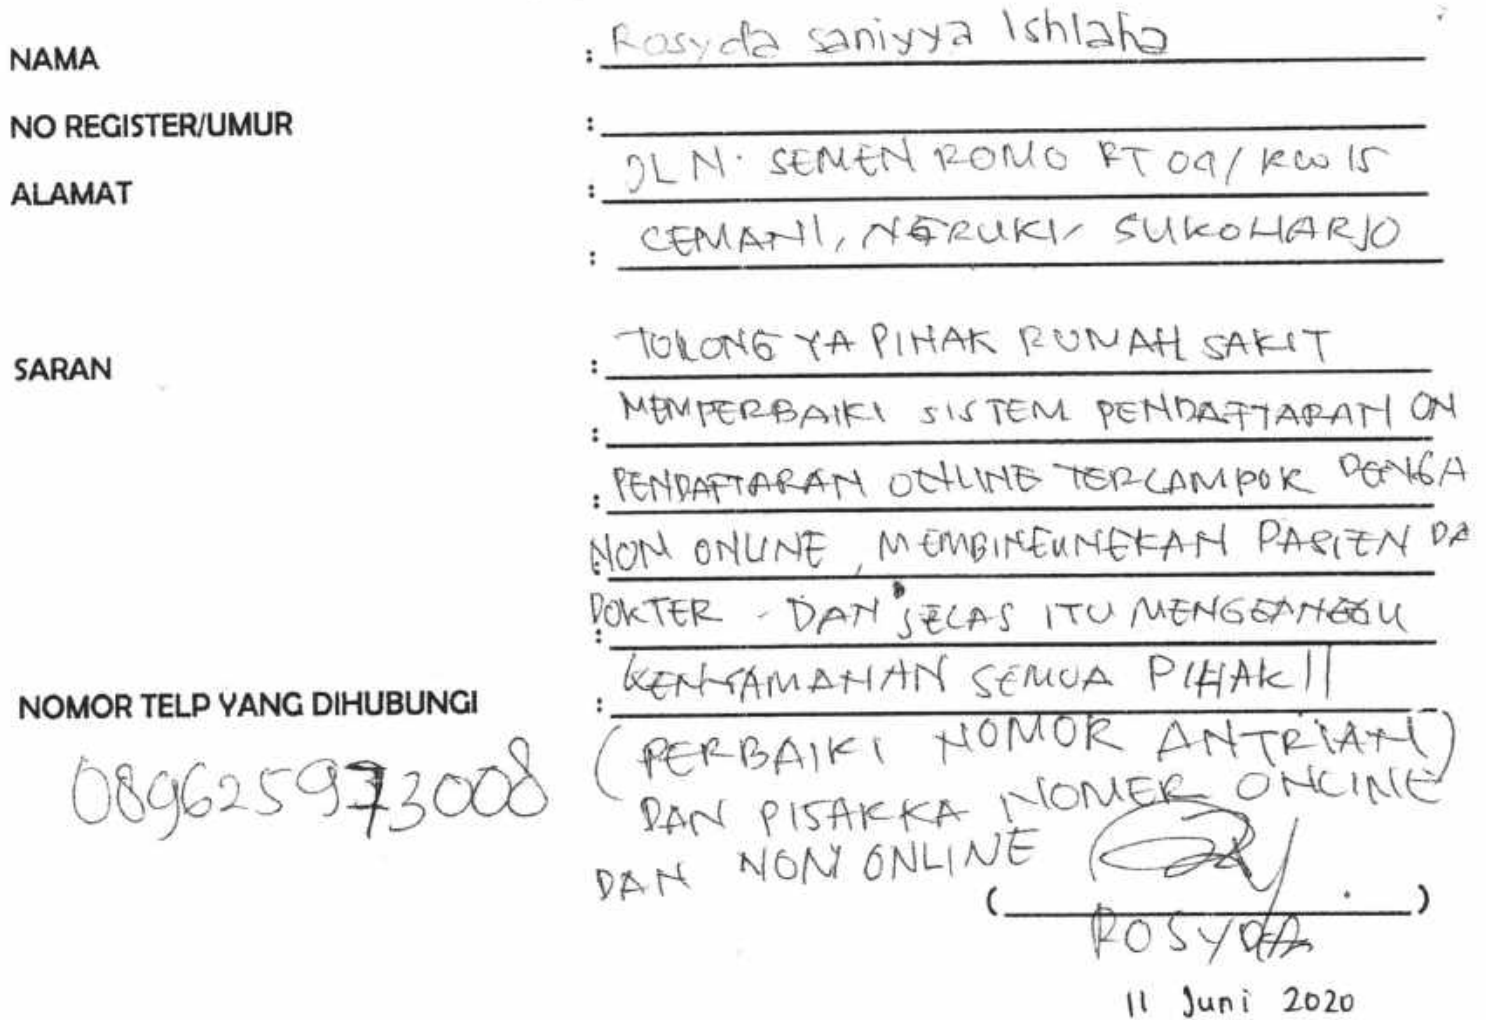 NAMA : Rosyda saniyya Ishlaha
NO REGISTER/UMUR :
ALAMAT : JLN. SEMEN ROMO RT 09/RW 15
: CEMANI, NGRUKI, SUKOHARJO
SARAN : TOLONG YA PIHAK RUMAH SAKIT
: MEMPERBAIKI SISTEM PENDAFTARAN ON
: PENDAFTARAN ONLINE TERCAMPOR DENGA
: NON ONLINE, MEMBINGUNGKAN PASIEN DA
: DOKTER - DAN JELAS ITU MENGGANGGU
NOMOR TELP YANG DIHUBUNGI : KENYAMANAN SEMUA PIHAK!!
089625973008
(PERBAIKI NOMOR ANTRIAN)
DAN PISAKKA NOMER ONLINE
DAN NON ONLINE
( )
ROSYDA
11 Juni 2020